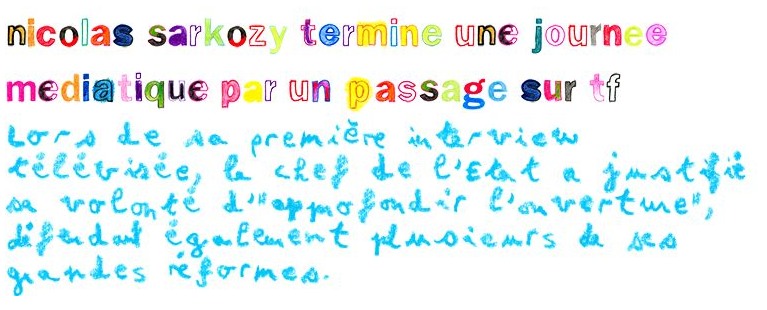 nicolas sarkozy termine une journee
mediatique par un passage sur tf
Lors de sa première interview
télévisée, le chef de l'Etat a justifié
sa volonté d'"approfondir l'ouverture",
défendant également plusieurs de ses
grandes réformes.